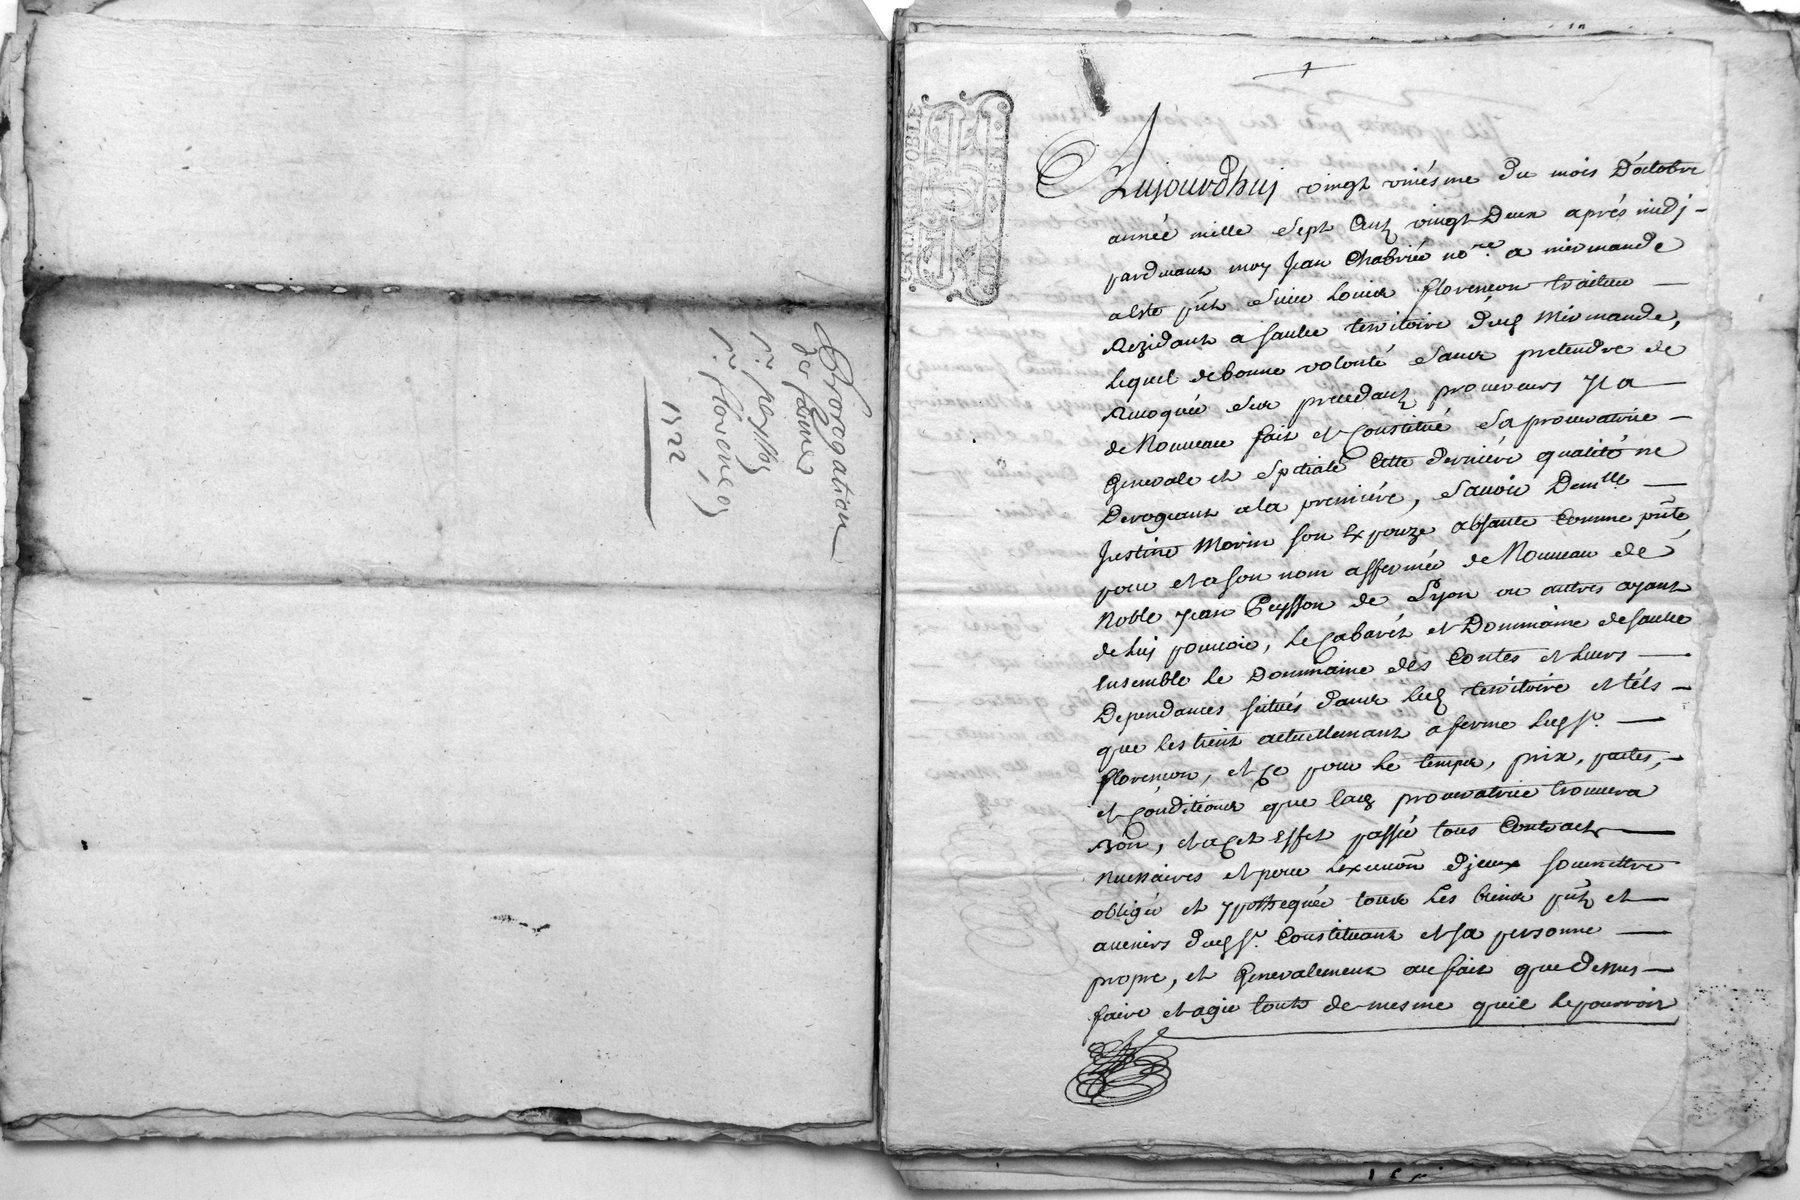 Prorogation
des fermes
Sr. peysson
Sr. florancon
1722
GRENOBLE
Aujourdhuj vingt uniésme du mois Doctobre
année mille sept Centz vingt Deux aprés midj
pardevant moy Jean Chabrié nore. a mirmande
a esté pñt sieur Louis florencon traiteur
Rezidant a saulce territoire dud mirmande,
lequel de bonne volonté sans pretendre de
revoquér ses precedantz procureurs y a
de Nouveau fait et Constitué sa procuratrice
Generale et spetiale Cette derniére qualité ne
Derogeant a la premiére, scavoir Demlle
Justine Morin son Expouze absante Comme pñte
pour et a son nom affermér de Nouveau de
Noble Jean Peysson de Lyon ou autres ayant
de luj pouvoir, le Cabarét et Dommaine de saulce
Ensemble le Dommaine des Contes et leurs
Dependances scitués dans led territoire et téls
que les tient actuellemant a ferme led Sr.
florencon, et Ce pour le temps, prix, pactes,
et Conditions que lad procuratrice trouvera
Bon, et a Cet Effet passér tous Contracts
necessaires et pour L'exćuōn d'jceux soumettre
obligér et ypothequér tous les biens pñtz et
avenirs dud Sr. Constituant et sa personne
propre, et Generalement au fait que dessus
faire et agir tout de mesme quil le pourroit